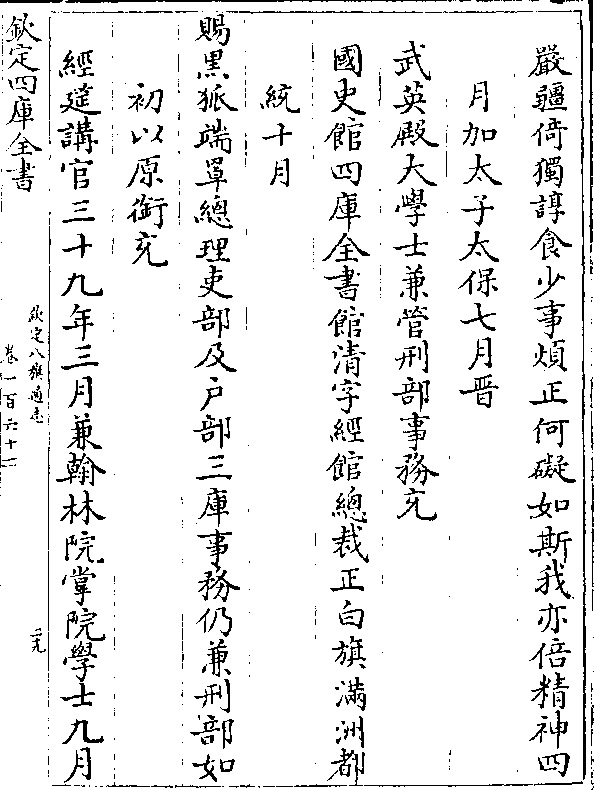 嚴疆倚獨諄食少事煩正何礙如斯我亦倍精神四
月加太子太保七月晋
武英殿大學士兼管刑部事務充
國史館四庫全書館清字經館總裁正白旗滿洲都
統十月
賜黒狐端罩總理吏部及户部三庫事務仍兼刑部如
初以原銜充
經筵講官三十九年三月兼翰林院掌院學士九月
欽定四庫全書
欽定八旗通志
卷一百六十一
二九